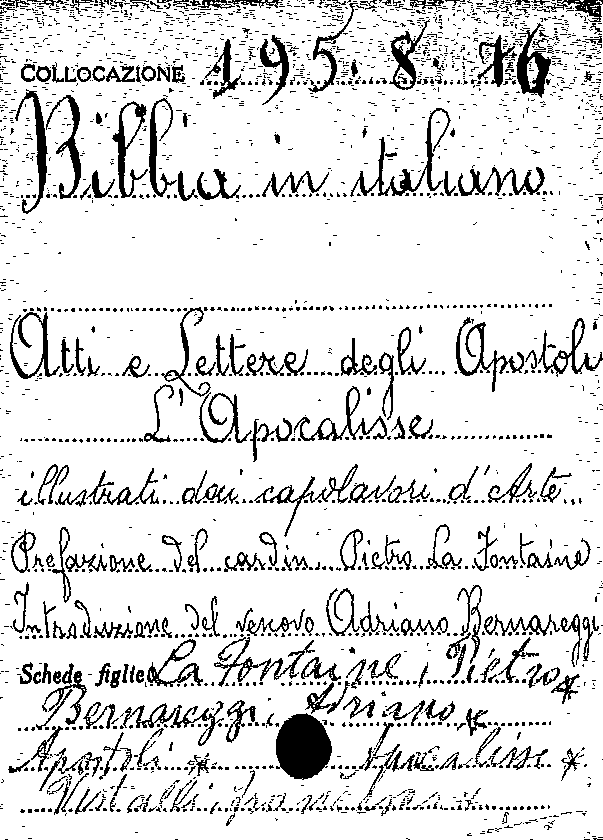 COLLOCAZIONE 195. 8. 16
Bibbia in italiano
Atti e Lettere degli Apostoli
L'Apocalisse
illustrati dai capolavori d'Arte
Prefazione del cardin. Pietro La Fontaine
Introduzione del vescovo Adriano Bernareggi
Schede figlie: La Fontaine, Pietro *
Bernareggi, Adriano *
Apostoli * Apocalisse *
Vistalli, Francesco *